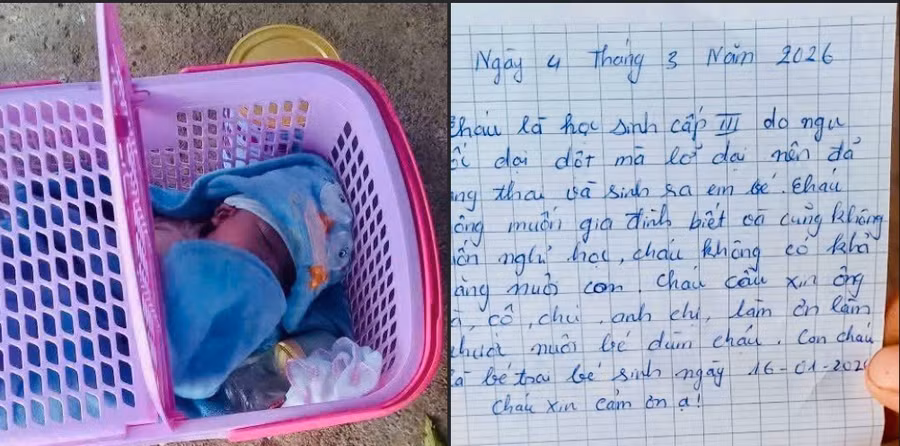 Ngày 4 Tháng 3 Năm 2026
cháu là học sinh cấp III do ngu
dại dốt mà lở dại nên đã
ng thai và sinh ra em bé. cháu
ông muốn gia đình biết và cũng không
ốn nghỉ học, cháu không có khả
ăng nuôi con. Cháu cầu xin ông
, cô, chú, anh chị, làm ơn làm
nuôi bé dùm cháu. Con cháu
là bé trai bé sinh ngày 16-01-202
cháu xin cảm ơn ạ!